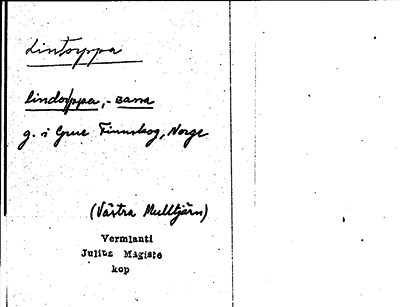 Lintoppa
lindorppa, - sana
g. i Grue Finnskog, Norge
(Västra Mulltjärn)
Vermlanti
Julius Mägiste
kop